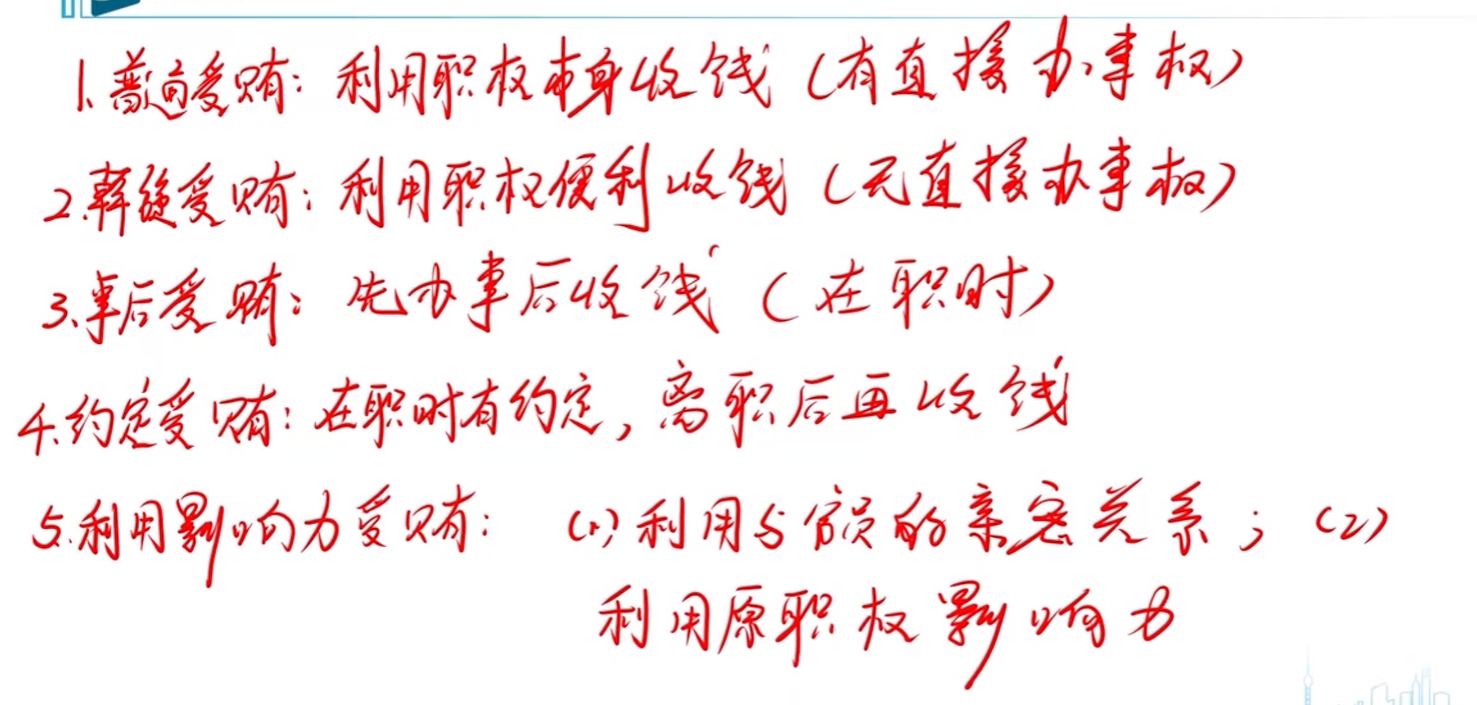 1.普通受贿：利用职权本身收钱（有直接办事权）
2.斡旋受贿：利用职权便利收钱（无直接办事权）
3.事后受贿：先办事后收钱（在职时）
4.约定受贿：在职时有约定，离职后再收钱
5.利用影响力受贿：（1）利用与官员的亲密关系；（2）
利用原职权影响力